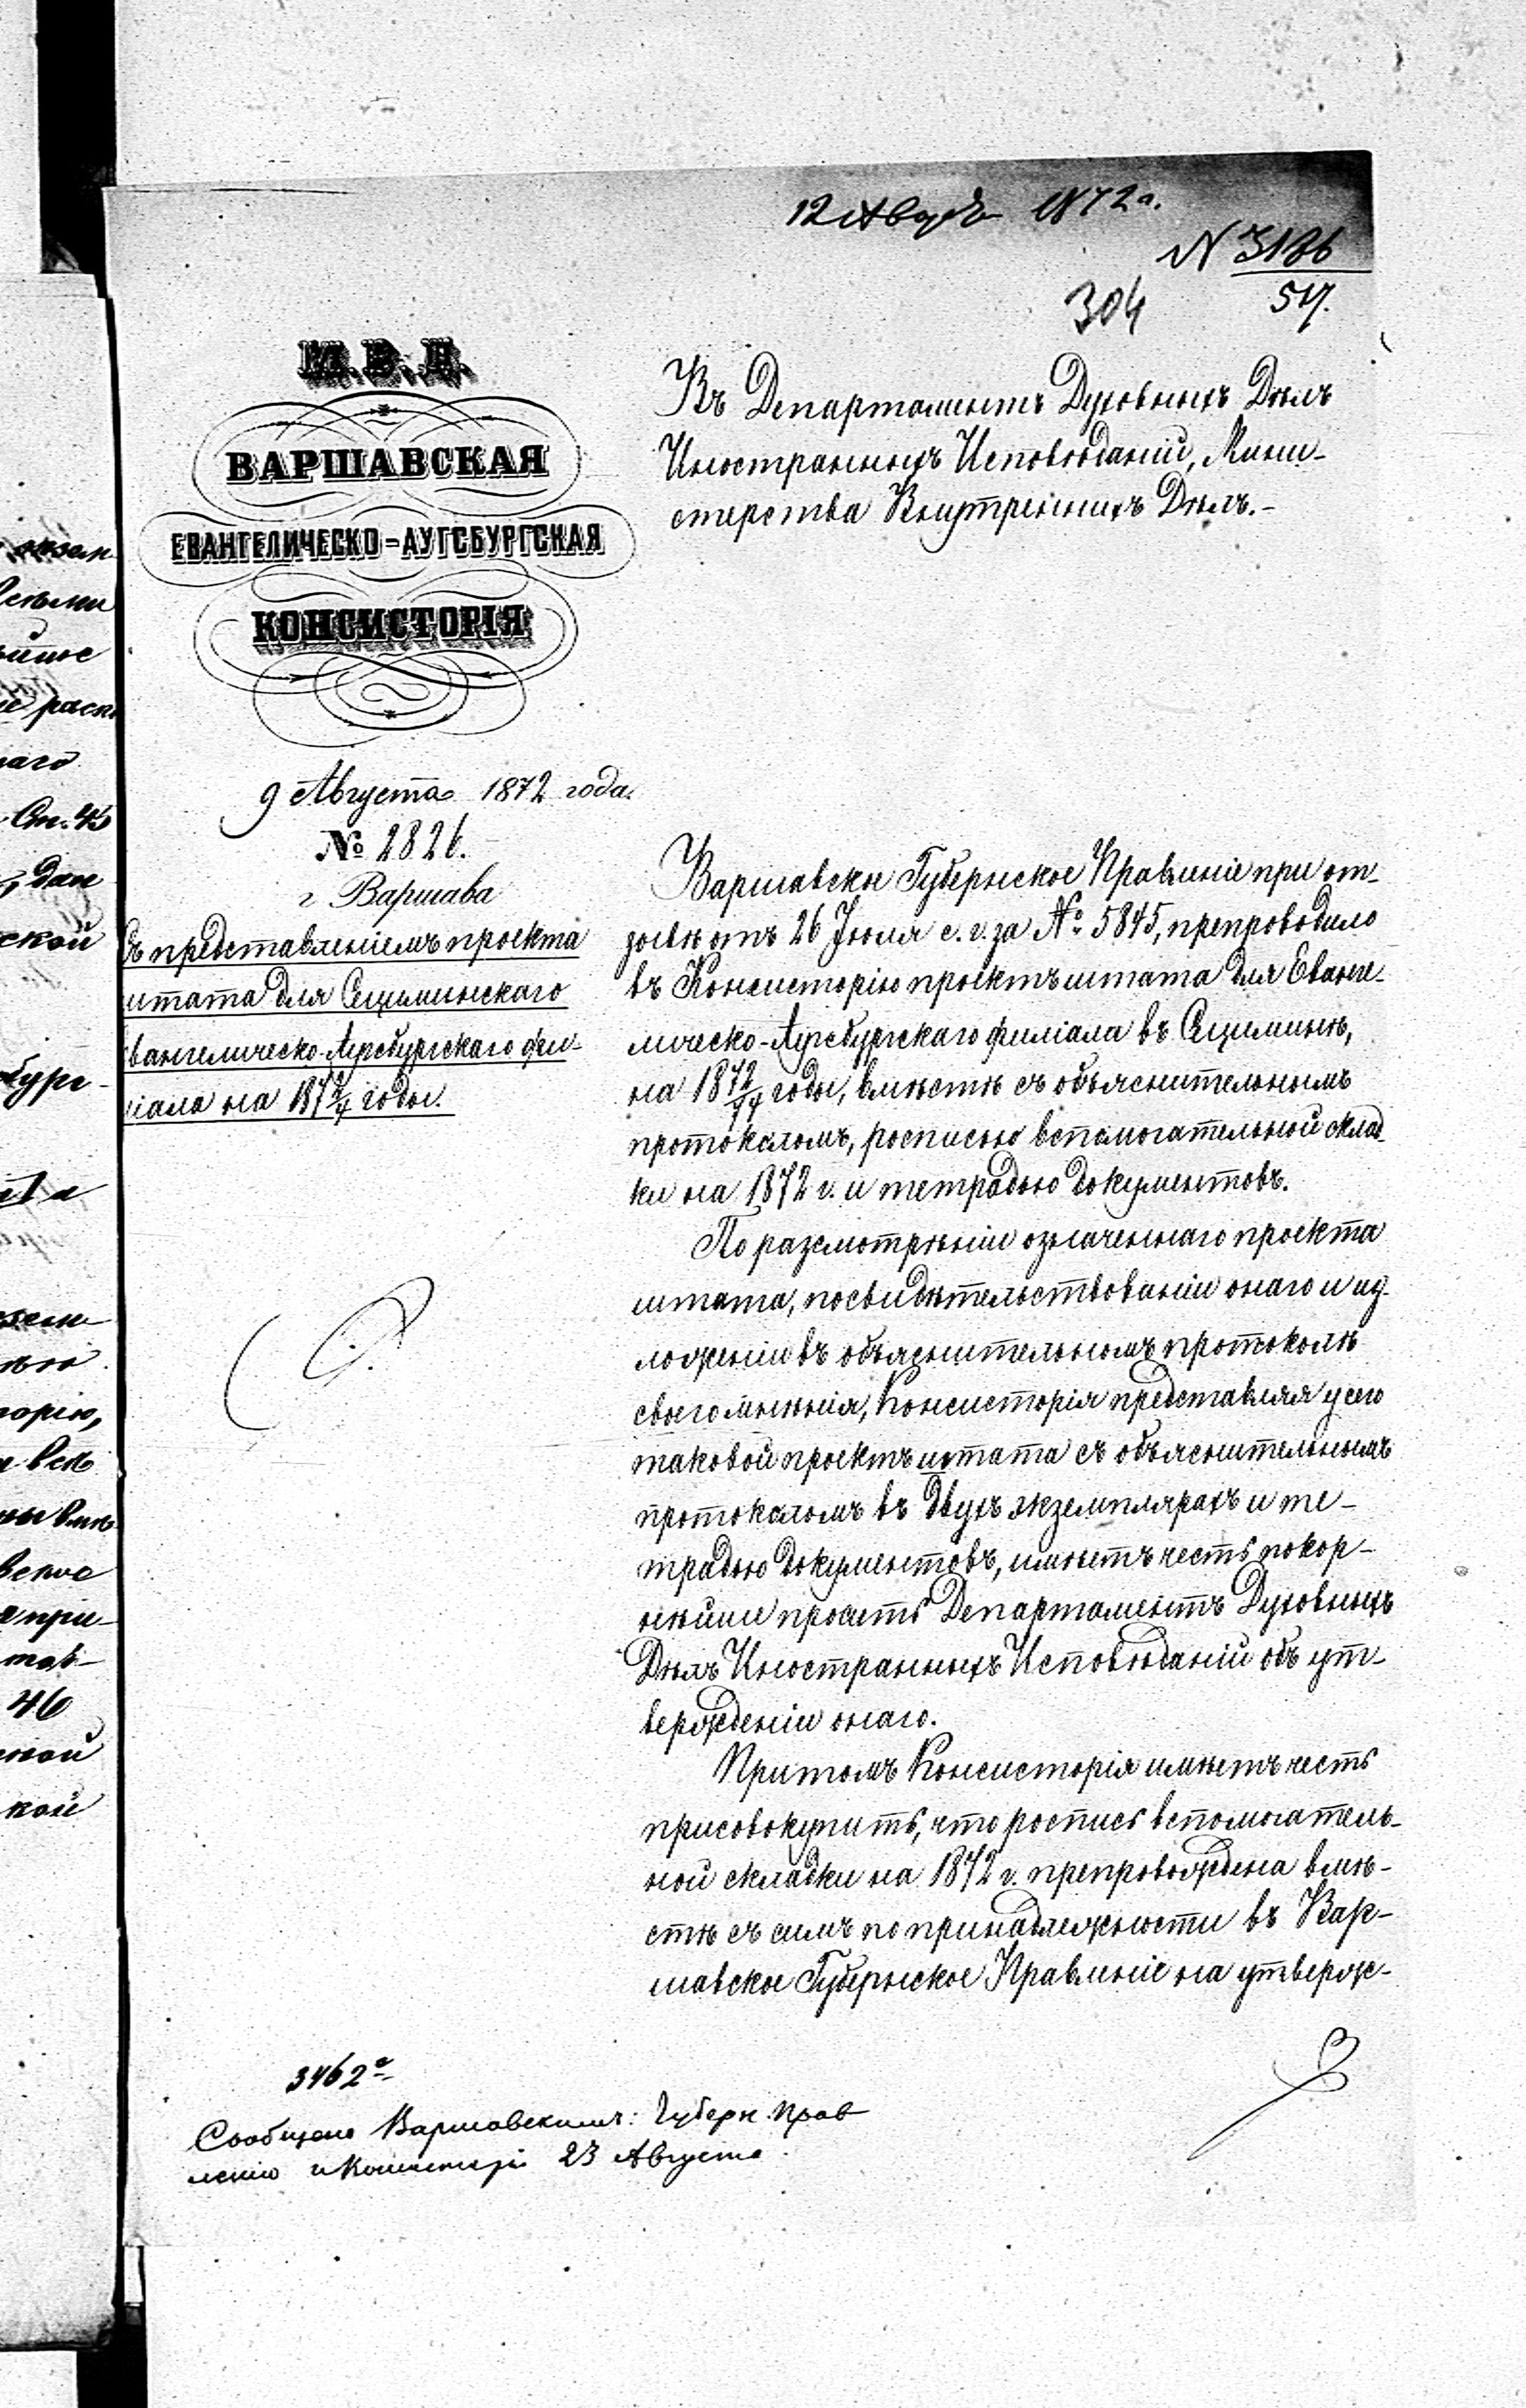 12 Авг 1872 г.
№ 3186
517.
304
М. В. Д.
ВАРШАВСКАЯ
ЕВАНГЕЛИЧЕСКО-АУГСБУРГСКАЯ
КОНСИСТОРІЯ
9 Августа 1872 года.
№ 2826.
г. Варшава
Съ представленіемъ проекта
штата для Сцыминскаго
Евангелическо-Аугсбургскаго фи-
ліала на 1872/4 годы.
Въ Департаментъ Духовныхъ Дѣлъ
Иностранныхъ Исповѣданій, Мини-
стерства Внутреннихъ Дѣлъ.-
Варшавское Губернское Правленіе при от-
зывѣ отъ 26 Іюля с. г. за № 5845, препроводило
въ Консисторію проектъ штата для Еванге-
лическо-Аугсбургскаго филіала въ Сцыминѣ,
на 1872/74 годы, вмѣстѣ съ объяснительнымъ
протоколомъ, росписью вспомогательной склад-
ки на 1872 г. и тетрадью документовъ.
По разсмотрѣніи означеннаго проекта
штата, посвидѣтельствованіи онаго и из-
ложеніи въ объяснительномъ протоколѣ
своего мнѣнія, Консисторія представляя у сего
таковой проектъ штата съ объяснительнымъ
протоколомъ въ двухъ экземплярахъ и те-
традью документовъ, имѣетъ честь покор-
нѣйше просить Департаментъ Духовныхъ
Дѣлъ Иностранныхъ Исповѣданій объ ут-
вержденіи онаго.
Притомъ Консисторія имѣетъ честь
присовокупить, что роспись вспомогатель-
ной складки на 1872 г. препровождена вмѣ-
стѣ съ симъ по принадлежности въ Вар-
шавское Губернское Правленіе на утверж-
3462
Сообщено Варшавскимъ: Губерн. Прав
ленію и Консисторіи 23 Августа.